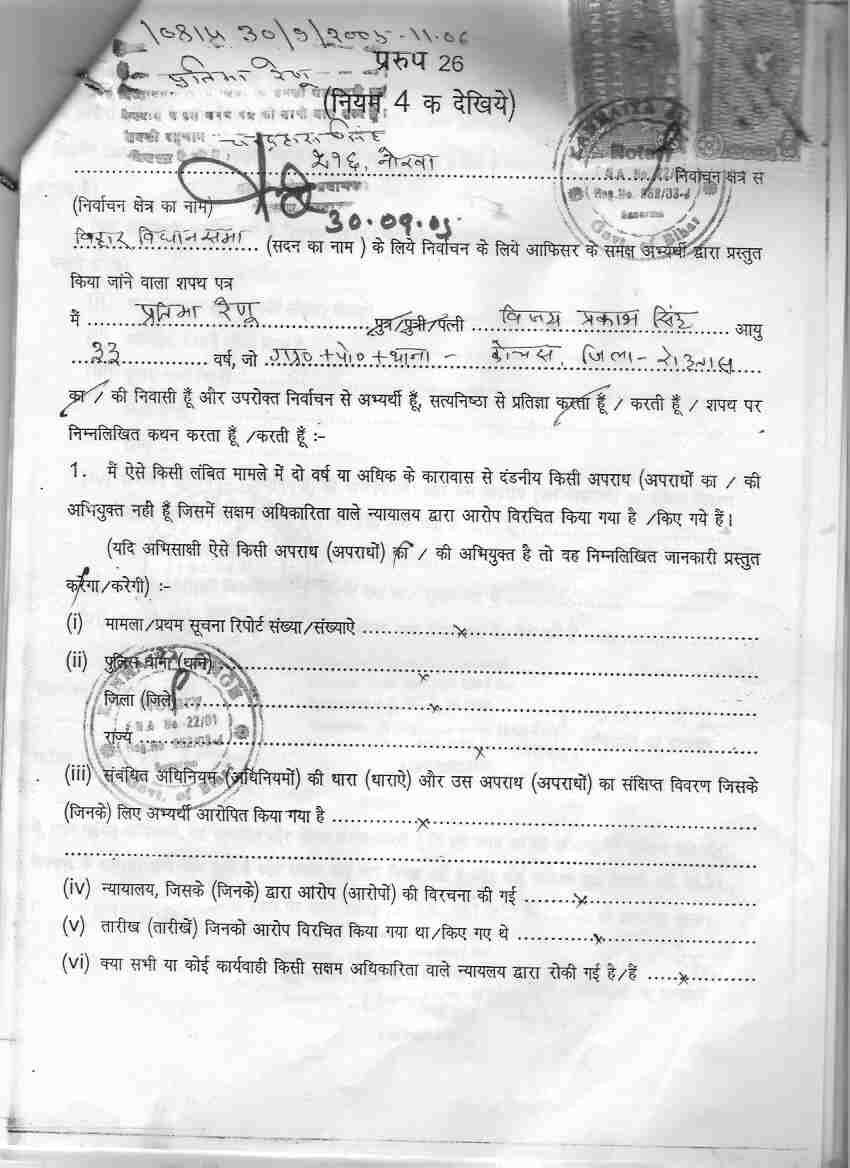 30/9/2005
प्रारुप 26
प्रतिमा रेणु
(नियम 4 क देखिये)
२१६, नोखा निर्वाचन क्षेत्र स
(निर्वाचन क्षेत्र का नाम)
30.09.05
बिहार विधानसभा (सदन का नाम ) के लिये निर्वाचन के लिये आफिसर के समक्ष अभ्यर्थी द्वारा प्रस्तुत
किया जांने वाला शपथ पत्र
मैं प्रतिमा रेणु पुत्र/पुत्री/पत्नी विजय प्रकाश सिंह आयु
३३ वर्ष, जो ग्रा०+पो०+थाना - कोचस, जिला - रोहतास
का / की निवासी हूँ और उपरोक्त निर्वाचन से अभ्यर्थी हूँ, सत्यनिष्ठा से प्रतिज्ञा करता हूँ / करती हूँ / शपथ पर
निम्नलिखित कथन करता हूँ /करती हूँ :-
1. मैं ऐसे किसी लंबित मामले में दो वर्ष या अधिक के कारावास से दंडनीय किसी अपराध (अपराधों का / की
अभियुक्त नही हूँ जिसमें सक्षम अधिकारिता वाले न्यायालय द्वारा आरोप विरचित किया गया है /किए गये हैं।
(यदि अभिसाक्षी ऐसे किसी अपराध (अपराधों) का / की अभियुक्त है तो वह निम्नलिखित जानकारी प्रस्तुत
करेगा/करेगी) :-
(i) मामला/प्रथम सूचना रिपोर्ट संख्या/संख्याऐ x
(ii) पुलिस थाना (थाने) x
जिला (जिले) x
राज्य x
(iii) संबंधित अधिनियम (अधिनियमों) की धारा (धाराऐ) और उस अपराध (अपराधों) का संक्षिप्त विवरण जिसके
(जिनके) लिए अभ्यर्थी आरोपित किया गया है x
(iv) न्यायालय, जिसके (जिनके) द्वारा आरोप (आरोपों) की विरचना की गई x
(v) तारीख (तारीखें) जिनको आरोप विरचित किया गया था/किए गए थे x
(vi) क्या सभी या कोई कार्यवाही किसी सक्षम अधिकारिता वाले न्यायलय द्वारा रोकी गई है/हैं x